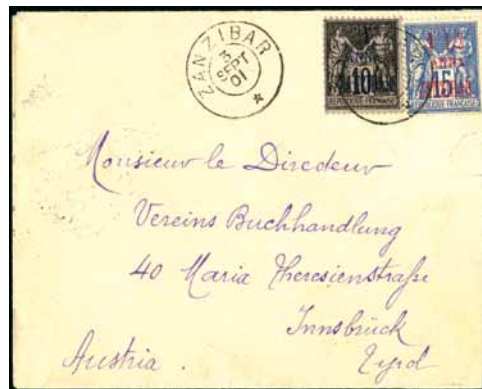 ZANZIBAR
3
SEPT
01
10
15
REPUBLIQUE FRANÇAISE
REPUBLIQUE FRANÇAISE
Monsieur le Directeur
Vereins Buchhandlung
40 Maria Theresienstraße
Innsbrück
Austria . Tyrol